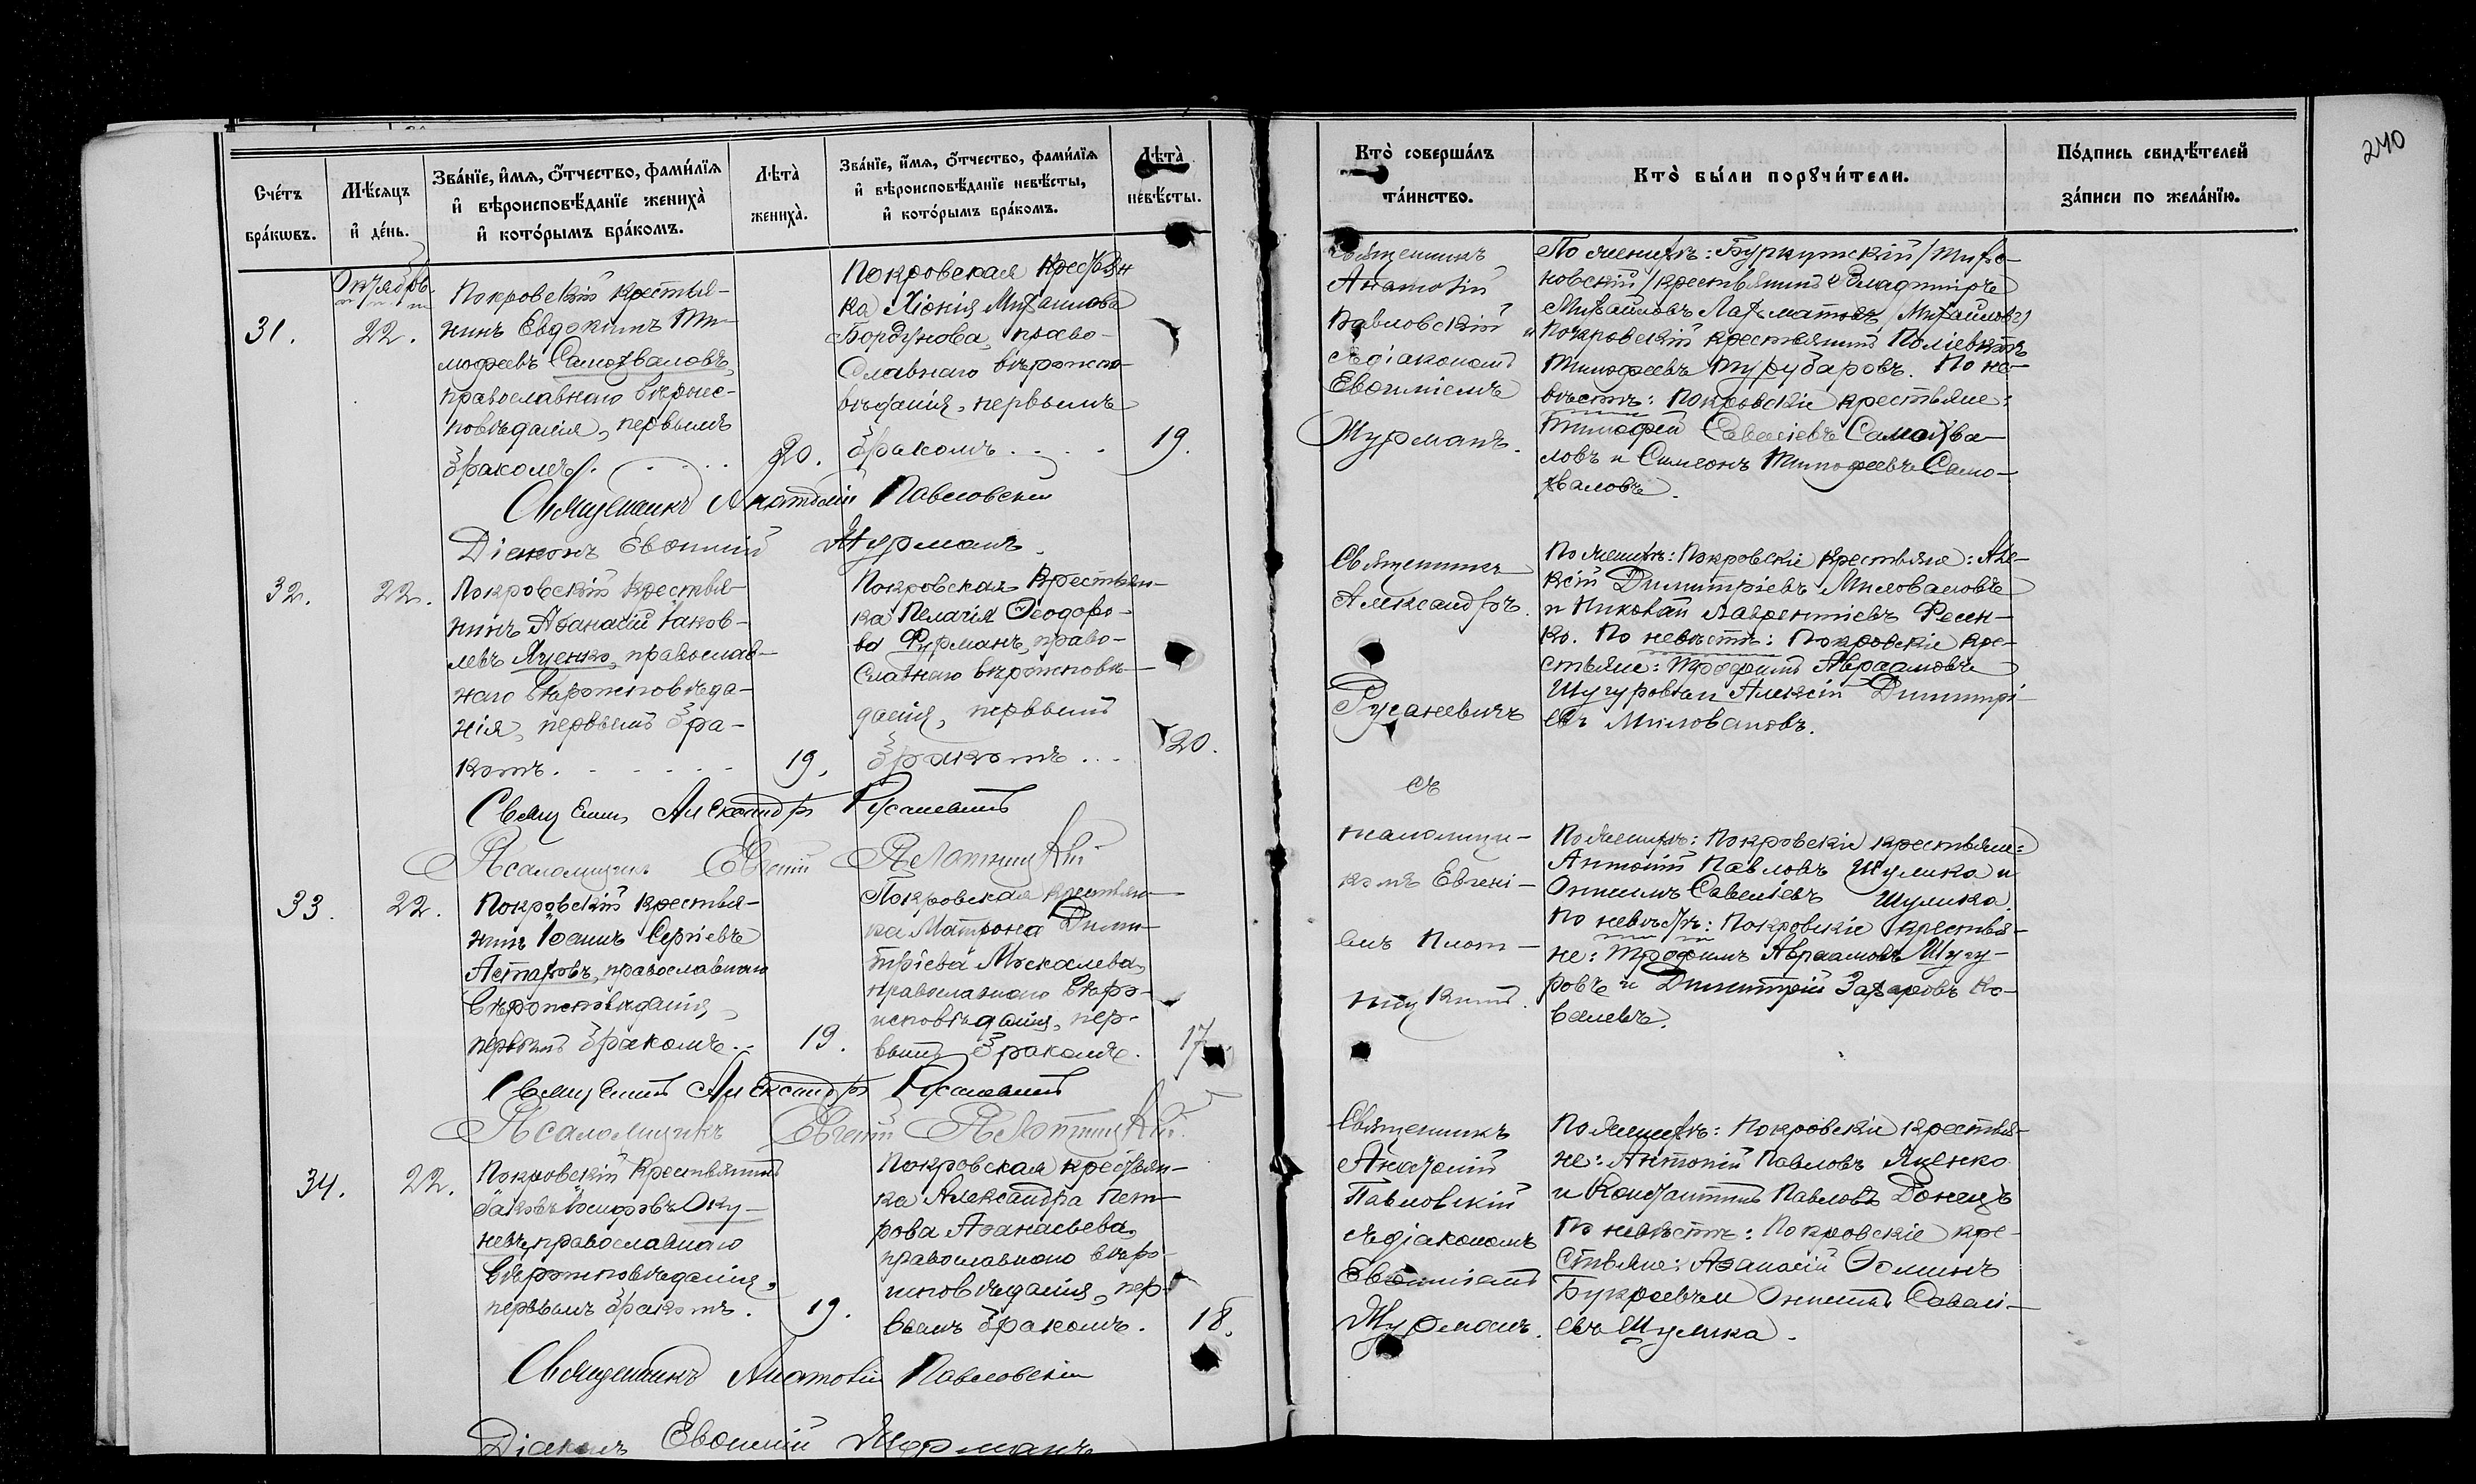 240
Счетъ
браковъ.
Мѣсяцъ
и день.
Званіе, имя, отчество, фамилія
и вѣроисповѣданіе жениха
и которымъ бракомъ.
Лѣта
жениха.
Званіе, имя, отчество, фамилія
и вѣроисповѣданіе невѣсты,
и которымъ бракомъ.
Лѣта
невѣсты.
Кто совершалъ
таинство.
Кто были поручители.
Подпись свидѣтелей
записи по желанію.
31.
Октябрь.
22.
Покровскій крестья-
нинъ Евдокимъ Ти-
моѳеевъ Самохваловъ,
православнаго вѣроис-
повѣданія, первымъ
бракомъ.
20.
Покровская крестьян
ка Хіонія Михаилова
Бордунова, право-
славнаго вѣроиспо-
вѣданія, первымъ
бракомъ
19.
Священникъ
Анатолій
Павловскій
съ діакономъ
Евѳиміемъ
Журманъ.
По женихѣ: Буркутскій /Тихо-
новскій/ крестьянинъ Владиміръ
Михайловъ
и Покровскій крестьянинъ Поліевктъ
Тимоѳеевъ Турубаровъ. По не-
вѣстѣ: Покровскіе крестьяне:
Тимоѳей Савеліевъ Самохва-
ловъ и Симеонъ Тимоѳеевъ Само-
хваловъ.
Священникъ Анатолій Павловскій
Діаконъ Евѳимій Журманъ.
32.
22.
Покровскій крестья-
нинъ Аѳанасій Іаков-
левъ Яценко, православ-
наго вѣроисповѣда-
нія, первымъ бра-
комъ.
19.
Покровская крестьян-
ка Пелагія Ѳеодоро-
ва Фурманъ, право-
славнаго вѣроисповѣ-
данія, первымъ
бракомъ
20.
Священникъ
Александръ
Русаневичъ
По женихѣ: Покровскіе крестьяне: Але-
ксій Димитріевъ Миловановъ
и Николай Лаврентіевъ Фесен-
ко. По невѣстѣ: Покровскіе кре-
стьяне: Трофимъ Авраамовъ
Шугуровъ и Алексій Димитрі-
евъ Миловановъ.
Священникъ Александръ Русаневичъ
Псаломщикъ Евгеній Плотницкій
33.
22.
Покровскій крестья-
нинъ Іоаннъ Сергіевъ
Астаховъ, православнаго
вѣроисповѣданія,
первымъ бракомъ.
19.
Покровская крестьян-
ка Матрона Дими-
тріева Москалева,
православнаго вѣро-
исповѣданія, пер-
вымъ бракомъ.
17
съ
псаломщи-
комъ Евгені-
емъ Плот-
ницкимъ.
По женихѣ: Покровскіе крестьяне:
Антоній Павловъ Шулика и
Онисимъ Савеліевъ Шулика.
По невѣстѣ: Покровскіе крестья-
не: Трофимъ Авраамовъ Шугу-
ровъ и Димитрій Захаровъ Ко-
валевъ.
Священникъ Александръ Русаневичъ
Псаломщикъ Евгеній Плотницкій.
34.
22.
Покровскій крестьянинъ
Іаковъ Іосифовъ Оку-
невъ, православнаго
вѣроисповѣданія,
первымъ бракомъ.
19.
Покровская крестьян-
ка Александра Пет-
рова Аѳанасьева,
православнаго вѣро-
исповѣданія, пер-
вымъ бракомъ.
18.
Священникъ
Анатолій
Павловскій
съ діакономъ
Евѳиміемъ
Журманъ.
По женихѣ: Покровскіе крестья-
не: Антоній Павловъ Яценко
и Константинъ Павловъ Донецъ
По невѣстѣ: Покровскіе кре-
стьяне: Аѳанасій Ѳоминъ
Букреевъ и Онисимъ Савелі-
евъ Шулика.
Священникъ Анатолій Павловскій
Діаконъ Евѳимій Журманъ